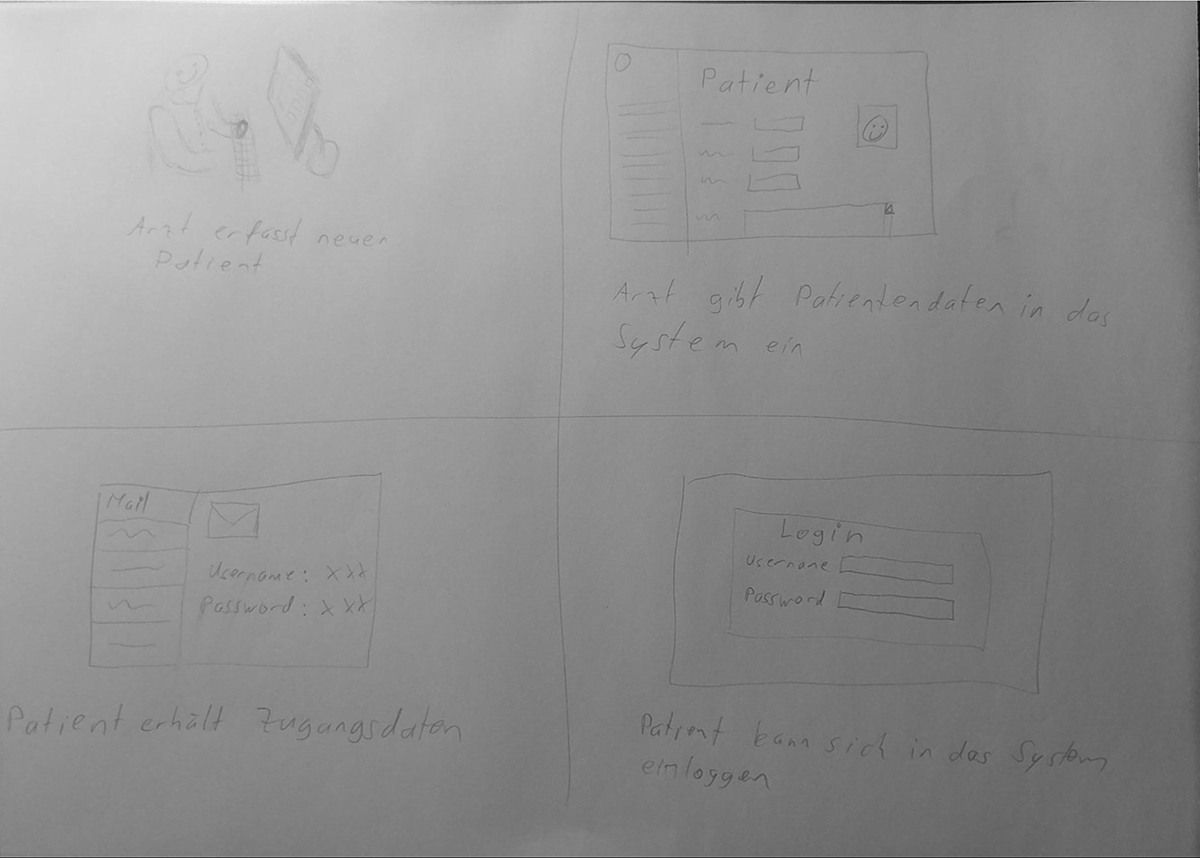 Arzt erfasst neuen
Patient
Patient
Arzt gibt Patientendaten in das
System ein
Mail
Username: xxx
Password: xxx
Patient erhält Zugangsdaten
Login
Username
Password
Patient kann sich in das System
einloggen